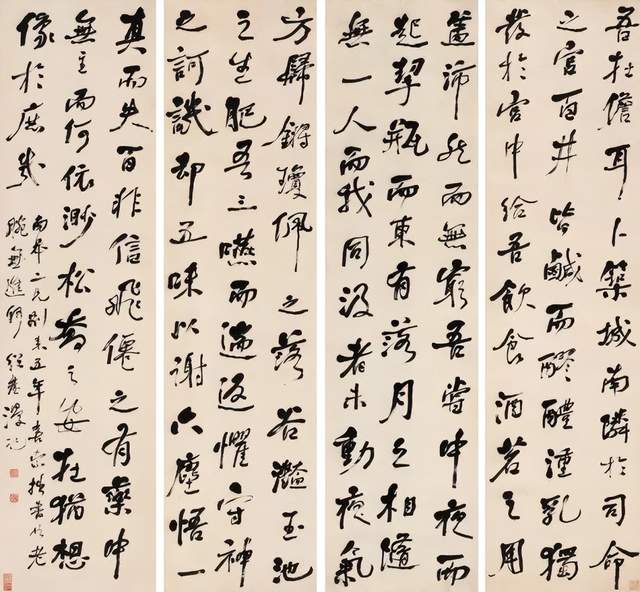 吾在儋耳卜築城南隣於司命
之宮百井皆鹹而醪醴湩乳獨
發於宮中給吾飲食酒茗之用
蓋沛然而無窮吾嘗中夜而
起挈瓶而東有落月之相隨
無一人而我同汲者未動夜氣
方歸鏘瓊佩之落谷灩玉池
之生肥吾三嚥而遄返懼守神
之訶譏却五味以謝六塵悟一
真而失百非信飛僊之有藥中
無主而何依渺松喬之安在猶想
像於庶幾
二兄別來五年